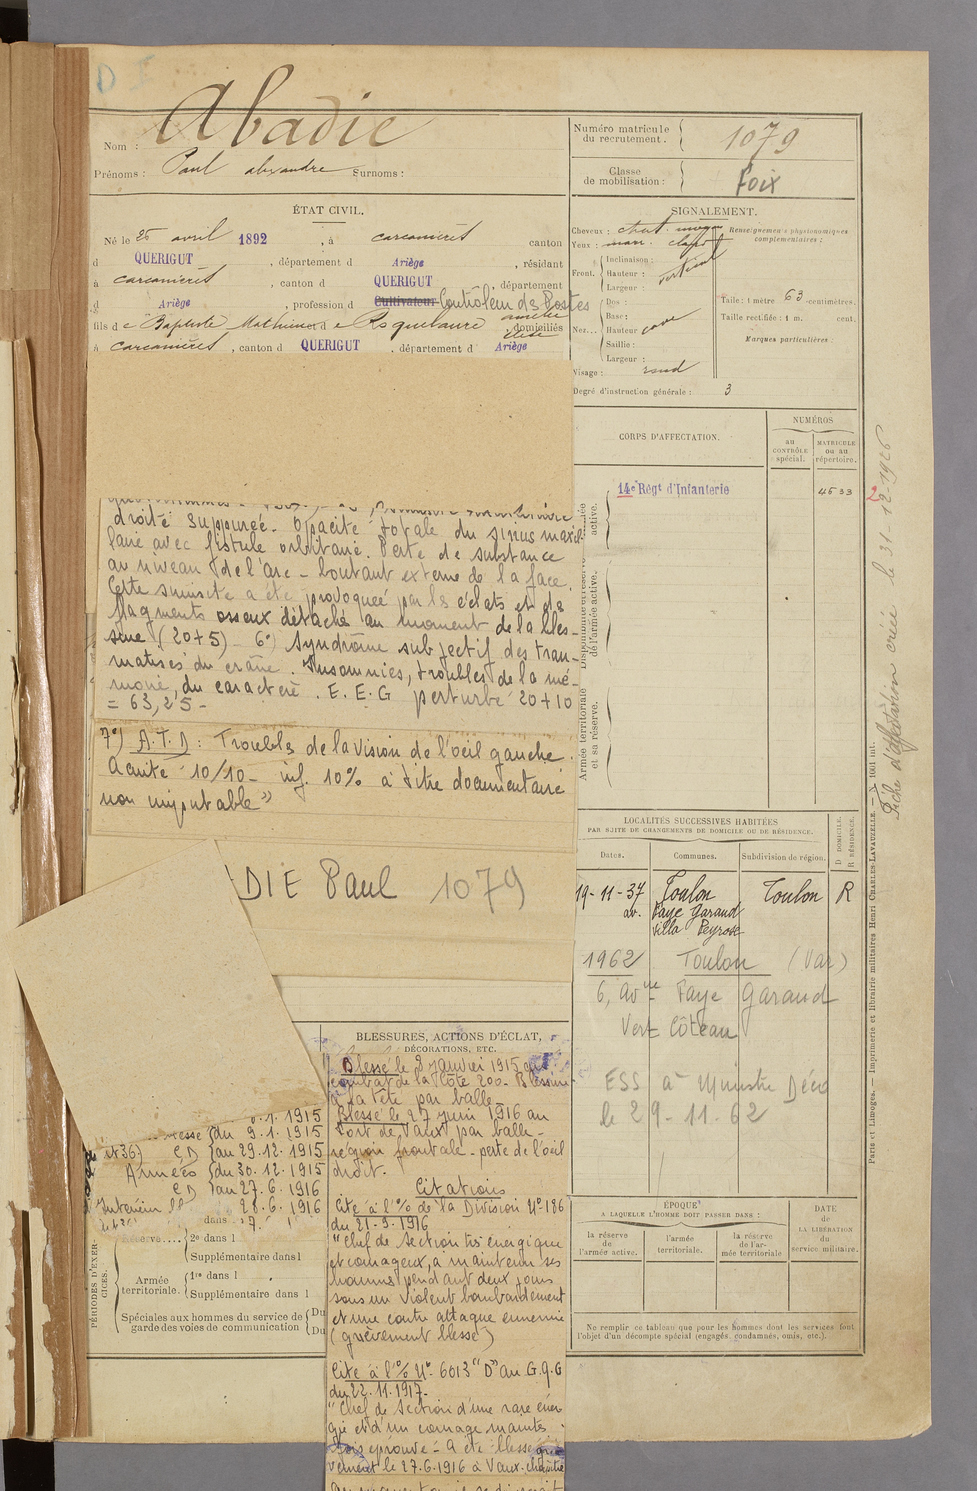 Nom : Abadie
Prénoms : Paul alexandre Surnoms :
Numéro matricule du recrutement. 1079
Classe de mobilisation : Foix
ÉTAT CIVIL.
Né le 25 avril 1892, à carcanières canton
d QUERIGUT, département d Ariège, résidant
à carcanières, canton d QUERIGUT, département
d Ariège, profession d Cultivateur Contrôleur des Postes
fils de Baptiste Mathieu et de Roquelaure domiciliés
à carcanières, canton d QUERIGUT, département d Ariège
SIGNALEMENT.
Cheveux : chat.
Yeux : marr.
Renseignements physionomiques complémentaires :
Front.
Inclinaison :
Hauteur : vertical
Largeur :
Nez...
Dos :
Base :
Hauteur cave
Saillie :
Largeur :
Visage : rond
Taille : 1 mètre 63 centimètres.
Taille rectifiée : 1 m. cent.
Marques particulières :
Degré d'instruction générale : 3
CORPS D'AFFECTATION.
NUMÉROS
au CONTRÔLE spécial.
MATRICULE ou au répertoire.
14e Régt d'Infanterie 4533
active.
Disponibilité et réserve de l'armée active.
Armée territoriale et sa réserve.
droite suppurée. Opacité totale du sinus maxil
laire avec fistule orbitaire. Perte de substance
au niveau de l'arc-boutant externe de la face.
Cette sinusite a été provoquée par les éclats et de
fragments osseux détaché au moment de la bles-
sure (20+5) 6°) Syndrome subjectif des trau-
matisés du crâne. Insomnies, troubles de la mé-
moire, du caractère. E.E.G perturbé 20+10
= 63,25 -
7°) A.T.D : Troubles de la vision de l'oeil gauche.
Acuité 10/10 - inf. 10% à titre documentaire
non imputable"
DIE Paul 1079
LOCALITÉS SUCCESSIVES HABITÉES
PAR SUITE DE CHANGEMENTS DE DOMICILE OU DE RÉSIDENCE.
Dates. Communes. Subdivision de région. D DOMICILE. R RÉSIDENCE.
19-11-37 Toulon Toulon R
av. Faye Garaud
villa Peyrose
1962 Toulon (Var)
6, avnue Faye Garaud
Vert Côteau
ESS à Ministre Déco
le 29-11-62
Fiche d'affectation créée le 31-12-1926
Paris et Limoges. — Imprimerie et librairie militaires Henri CHARLES-LAVAUZELLE. — N° 1001 int.
BLESSURES, ACTIONS D'ÉCLAT,
DÉCORATIONS, ETC.
Blessé le 8 janvier 1915 au
combat de la Côte 200. Blessure
à la tête par balle.
Blessé le 27 juin 1916 au
Fort de Vaux par balle -
région frontale - perte de l'oeil
droit.
Citations
Cité à l'O/ de la Division N° 186
du 21.9.1916
"Chef de section très énergique
et courageux, a maintenu ses
hommes pendant deux jours
sous un violent bombardement
et une contre attaque ennemie
(grièvement blessé)
Cité à l'O/ N° 6013 "D" au G.Q.G
du 22.11.1917.
"Chef de section d'une rare éner
gie et d'un courage maintes
fois éprouvé - a été blessé griè
vement le 27.6.1916 à Vaux-
.1.1915
du 9.1.1915
CD au 29.12.1915
Armées du 30.12.1915
CD au 27.6.1916
Intérieur 28.6.1916
dans
PÉRIODES D'EXERCICES.
Réserve....
2e dans l
Supplémentaire dans l
Armée territoriale.
1re dans l
Supplémentaire dans l
Spéciales aux hommes du service de garde des voies de communication
Du
Du
ÉPOQUE
A LAQUELLE L'HOMME DOIT PASSER DANS :
la réserve de l'armée active.
l'armée territoriale.
la réserve de l'armée territoriale
DATE de LA LIBÉRATION du service militaire.
Ne remplir ce tableau que pour les hommes dont les services font
l'objet d'un décompte spécial (engagés, condamnés, omis, etc.).